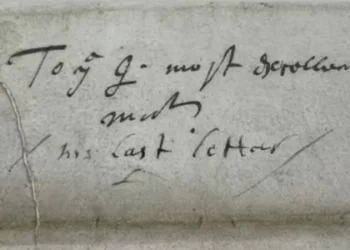 To yͤ Q. most Excellen
mat
his last letter